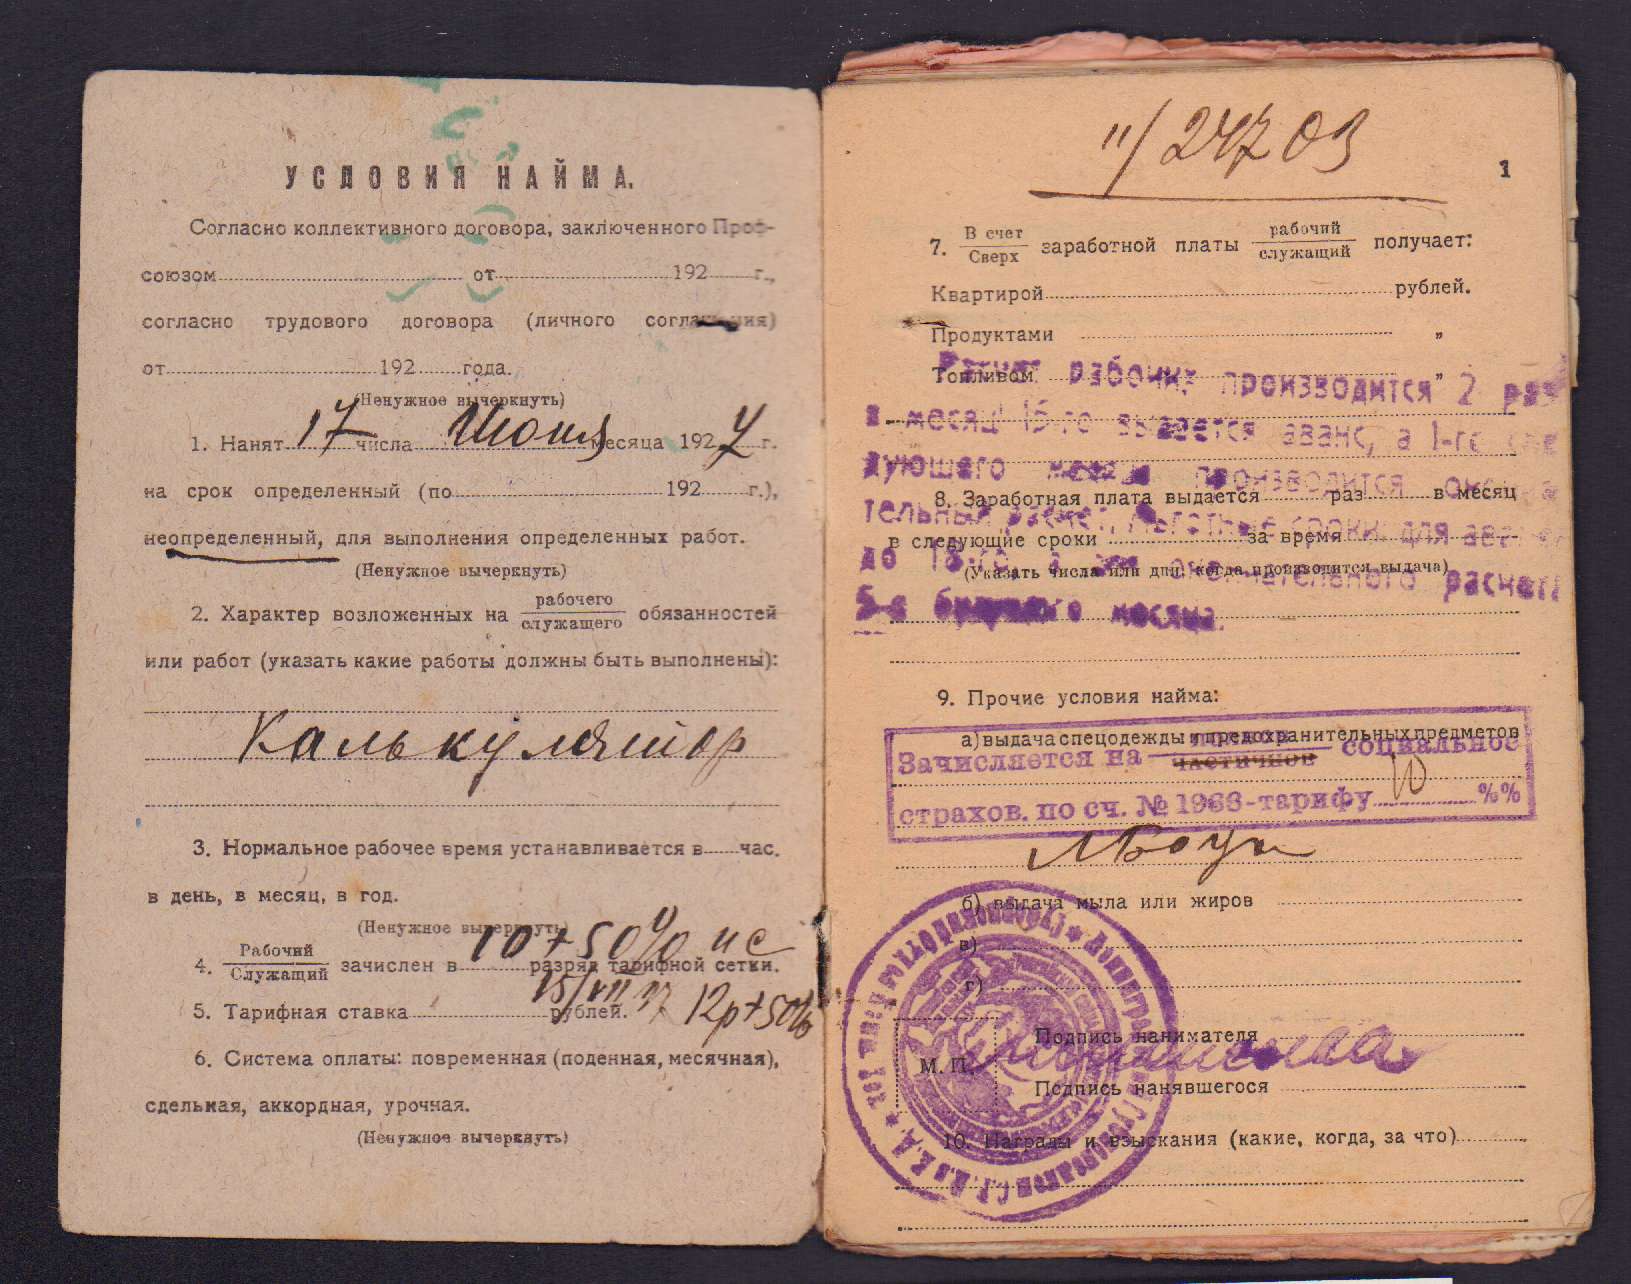 УСЛОВИЯ НАЙМА.
Согласно коллективного договора, заключенного Проф-
союзом от 192 г.,
согласно трудового договора (личного соглашения)
от 192 года.
(Ненужное вычеркнуть)
1. Нанят 17 числа Июня месяца 1927 г.
на срок определенный (по 192 г.),
неопределенный, для выполнения определенных работ.
(Ненужное вычеркнуть)
2. Характер возложенных на рабочего служащего обязанностей
или работ (указать какие работы должны быть выполнены):
Калькулятор
3. Нормальное рабочее время устанавливается в час.
в день, в месяц, в год.
(Ненужное вычеркнуть)
4. Рабочий Служащий зачислен в 10+50% разряд тарифной сетки.
15/VII 27 12р+50%
5. Тарифная ставка рублей.
6. Система оплаты: повременная (поденная, месячная),
сдельная, аккордная, урочная.
(Ненужное вычеркнуть)
11/24703
1
7. В счет Сверх заработной платы рабочий служащий получает:
Квартирой рублей.
Продуктами "
Топливом "
рабочих производится 2 раза
в месяц 15-го выдается аванс, а 1-го сле
дующего месяца производится оконча
тельный расчет, льготные сроки: для аванса
до 18-го, а для окончательного расчета
5-е будущего месяца.
8. Заработная плата выдается раз в месяц
в следующие сроки за время
(Указать числа или дни, когда производится выдача)
9. Прочие условия найма:
а) выдача спецодежды и предохранительных предметов
Зачисляется на полное частичное социальное
страхов. по сч. № 1963-тарифу 10 %%
б) выдача мыла или жиров
в)
г)
Подпись нанимателя
М. П.
Подпись нанявшегося
10. Награды и взыскания (какие, когда, за что)